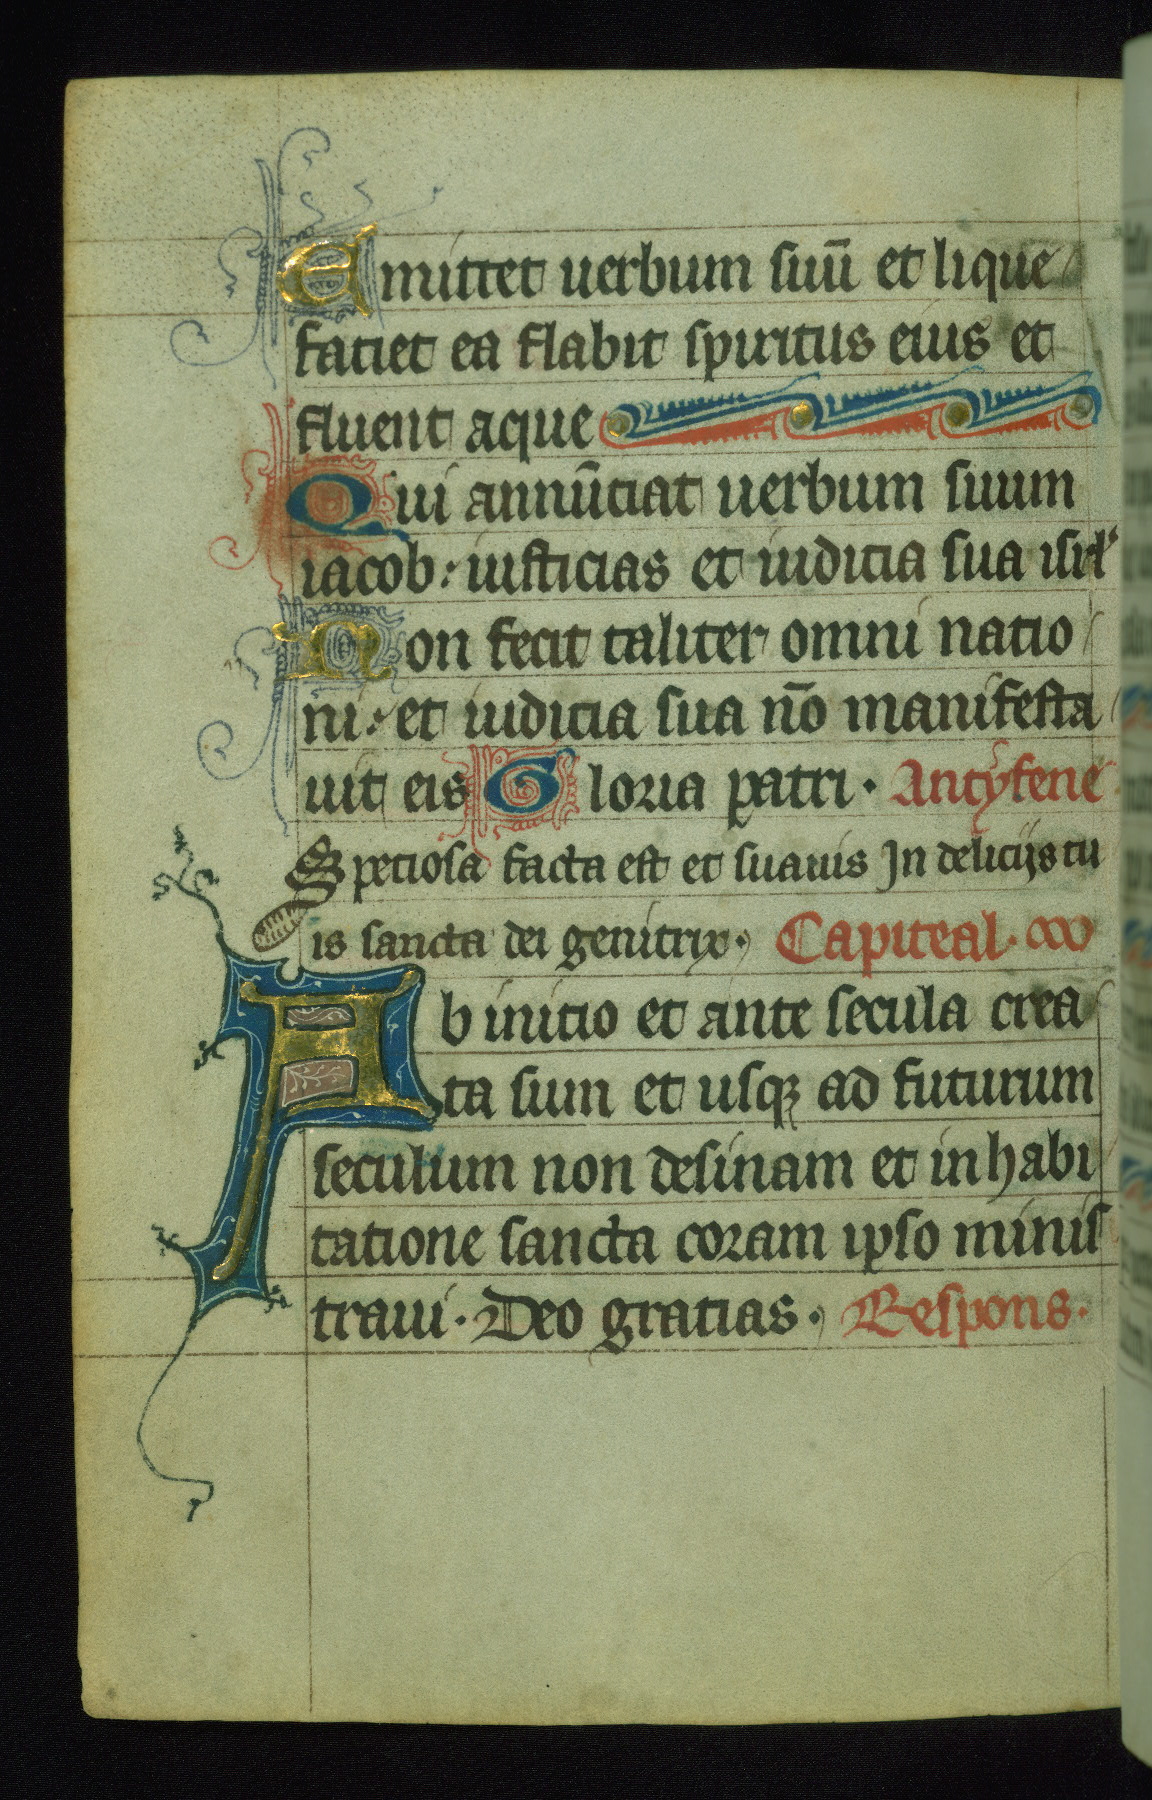 Emittet uerbum suū et lique
faciet ea flabit spiritus eius et
fluent aque
Qui annūciat uerbum suum
iacob: iusticias et iudicia sua isrl'
Non fecit taliter omni natio
ni: et iudicia sua nō manifesta
uit eis Gloria patri. Antyfene
Speciosa facta est et suauis In delicijs tu
is sancta dei genitrix. Capiteal.
Ab inicio et ante secula crea
ta sum et usqꝫ ad futurum
seculum non desinam et in habi
tatione sancta coram ipso minis
traui. Deo gratias. Respons.